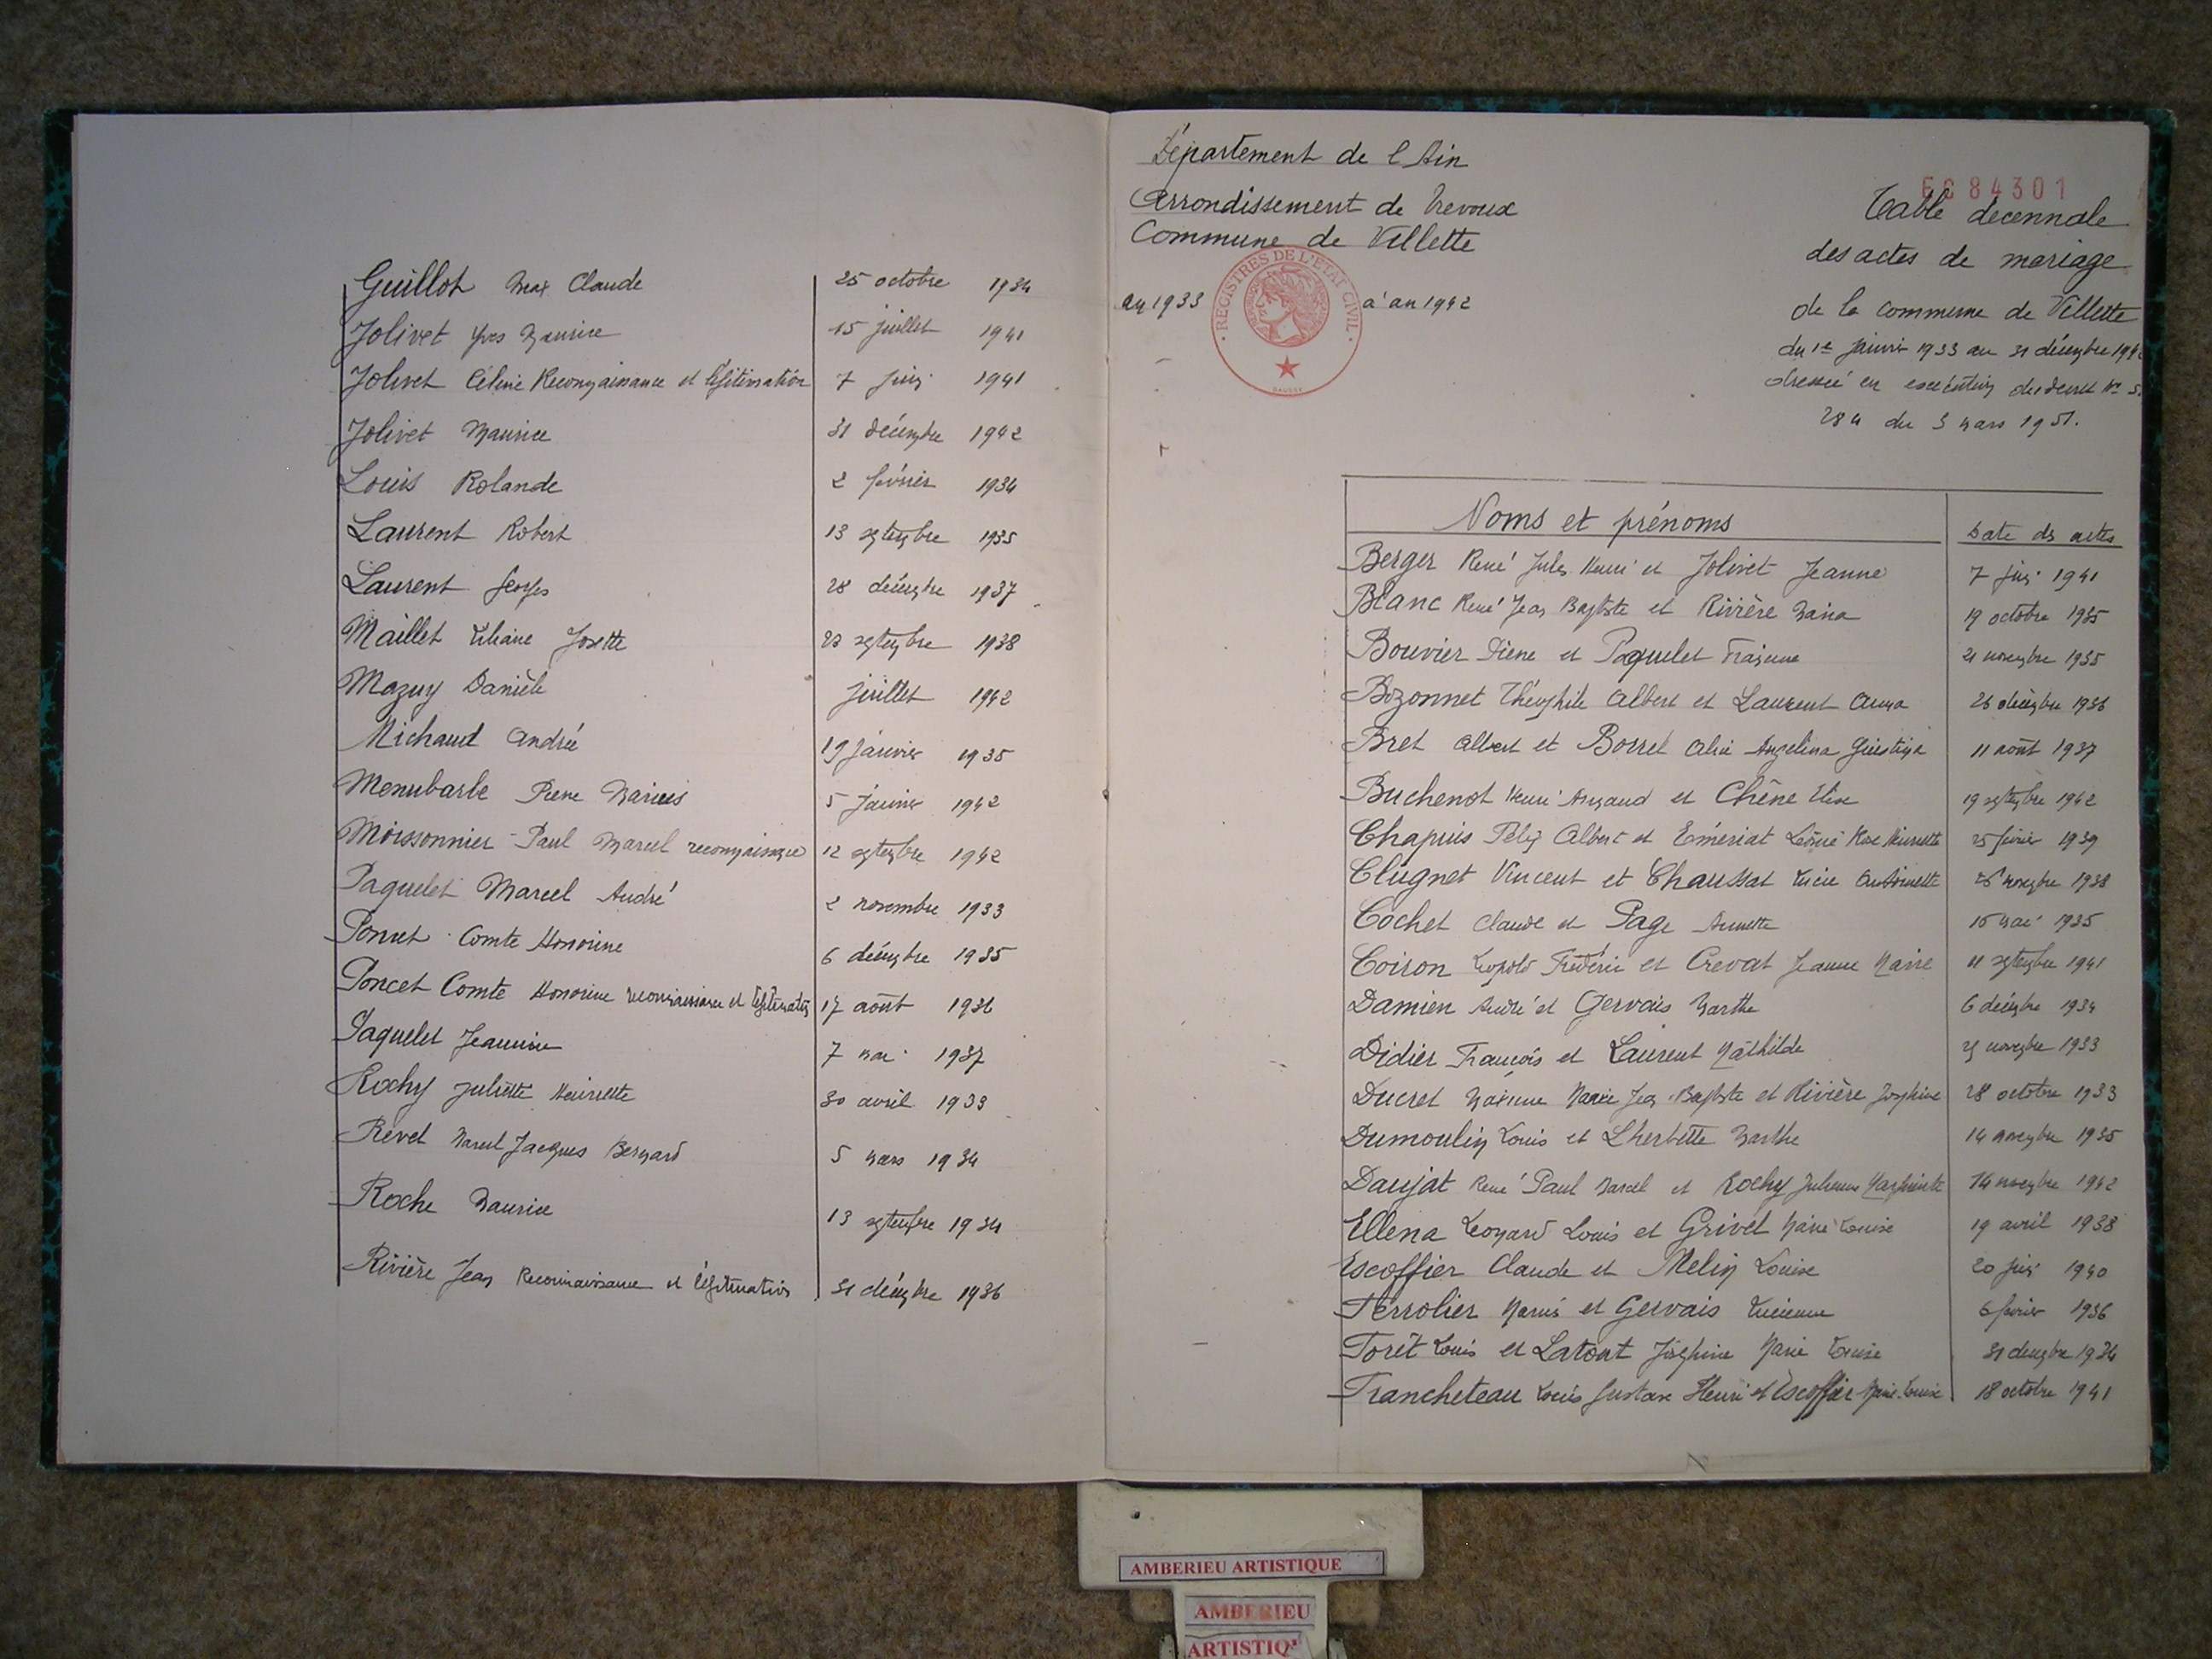 Guillot Max Claude 25 octobre 1934
Jolivet Yves Maurice 15 juillet 1941
Jolivet Céline Reconnaissance et légitimation 7 juin 1941
Jolivet Maurice 31 décembre 1942
Louis Rolande 2 février 1934
Laurent Robert 13 septembre 1935
Laurent Georges 28 décembre 1937
Maillet Liliane Josette 23 septembre 1938
Mazuy Danièle juillet 1942
Michaud Andrée 19 janvier 1935
Menubarbe Pierre Marius 5 janvier 1942
Moissonnier - Paul Marcel reconnaissance 12 septembre 1942
Paquelet Marcel André 2 novembre 1933
Poncet Comte Honorine 6 décembre 1935
Poncet Comte Honorine reconnaissance et légitimation 17 août 1936
Paquelet Jeannine 7 mai 1937
Rochy Juliette Henriette 30 avril 1933
Revel Marcel Jacques Bernard 5 mars 1934
Roche Maurice 13 septembre 1934
Rivière Jean Reconnaissance et légitimation 31 décembre 1936
Département de l'Ain
Arrondissement de Trevoux
Commune de Villette
an 1933 à an 1942
REGISTRES DE L'ETAT CIVIL
84301
Table décennale
des actes de mariage
de la commune de Villette
du 1er janvier 1933 au 31 décembre 1942
dressée en exécution du décret N° 5
284 du 3 mars 1951.
Noms et prénoms Date des actes
Berger René Jules Henri et Jolivet Jeanne 7 juin 1941
Blanc René Jean Baptiste et Rivière Maria 19 octobre 1935
Bouvier Pierre et Paquelet Françoise 21 novembre 1935
Bozonnet Théophile Albert et Laurent Anna 26 décembre 1936
Bret Albert et Borrel Angelina 11 août 1937
Buchenot Henri Armand et Chêne Elise 19 septembre 1942
Chapuis Félix Albert et Emériat Léonie Rose Henriette 25 février 1939
Clugnet Vincent et Chaussat Lucie Antoinette 26 novembre 1938
Cochet Claude et Page Annette 16 mai 1935
Coiron Léopold Frédéric et Crevat Jeanne Marie 11 septembre 1941
Damien André et Gervais Marthe 6 décembre 1934
Didier François et Laurent Mathilde 25 novembre 1933
Ducret Maxime Marie Jean-Baptiste et Rivière Joséphine 28 octobre 1933
Dumoulin Louis et Lherbette Marthe 14 novembre 1935
Daujat René Paul Marcel et Rochy Julienne Marguerite 14 novembre 1942
Ellena Léonard Louis et Grivet Marie Louise 19 avril 1938
Escoffier Claude et Melin Louise 20 juin 1940
Ferrolier Marius et Gervais Lucienne 6 février 1936
Forêt Louis et Latout Joséphine Marie Louise 31 décembre 1934
Francheteau Louis Gustave Henri et Escoffier Marie-Louise 18 octobre 1941
AMBERIEU ARTISTIQUE
AMBERIEU
ARTISTIQ